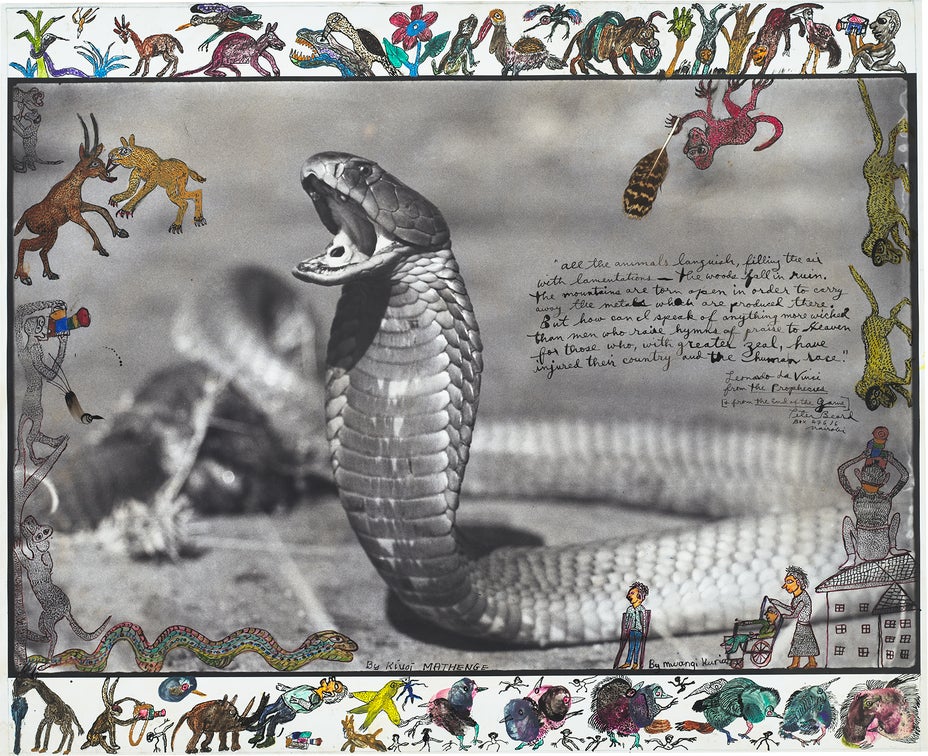 "all the animals languish, filling the air
with lamentations — the woods fall in ruin.
the mountains are torn open in order to carry
away the metals which are produced there;
But how can I speak of anything more wicked
than men who raise hymns of praise to heaven
for those who, with greater zeal, have
injured their country and the human race."
Leonardo da Vinci
from the Prophecies
[& from the End of the Game]
Peter Beard
Box 47616
Nairobi
By Kivoi MATHENGE
By mwangi Kuria